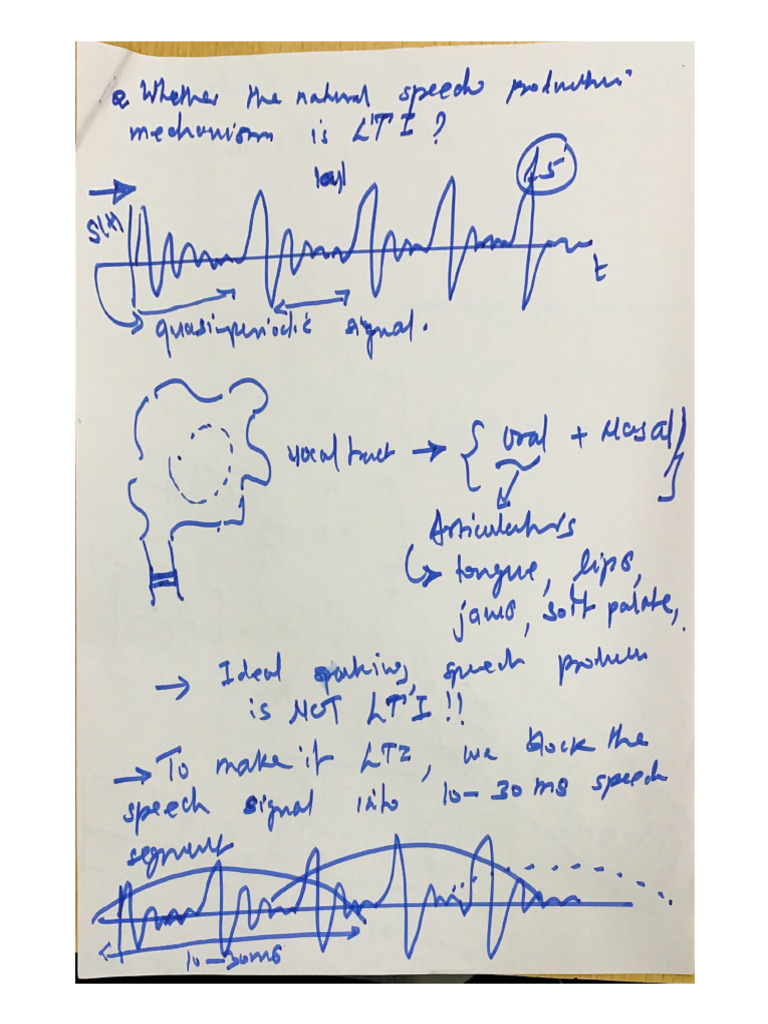 Whether the natural speech production
mechanism is LTI?
S(t)
t
quasiperiodic signal.
vocal tract → { oral + Nasal }
Articulators
↳ tongue, lips,
jaws, soft palate,
→ Ideal speaking, speech produc
is NOT LTI!!
→ To make it LTI, we block the
speech signal into 10-30ms speech
segment
10-30ms